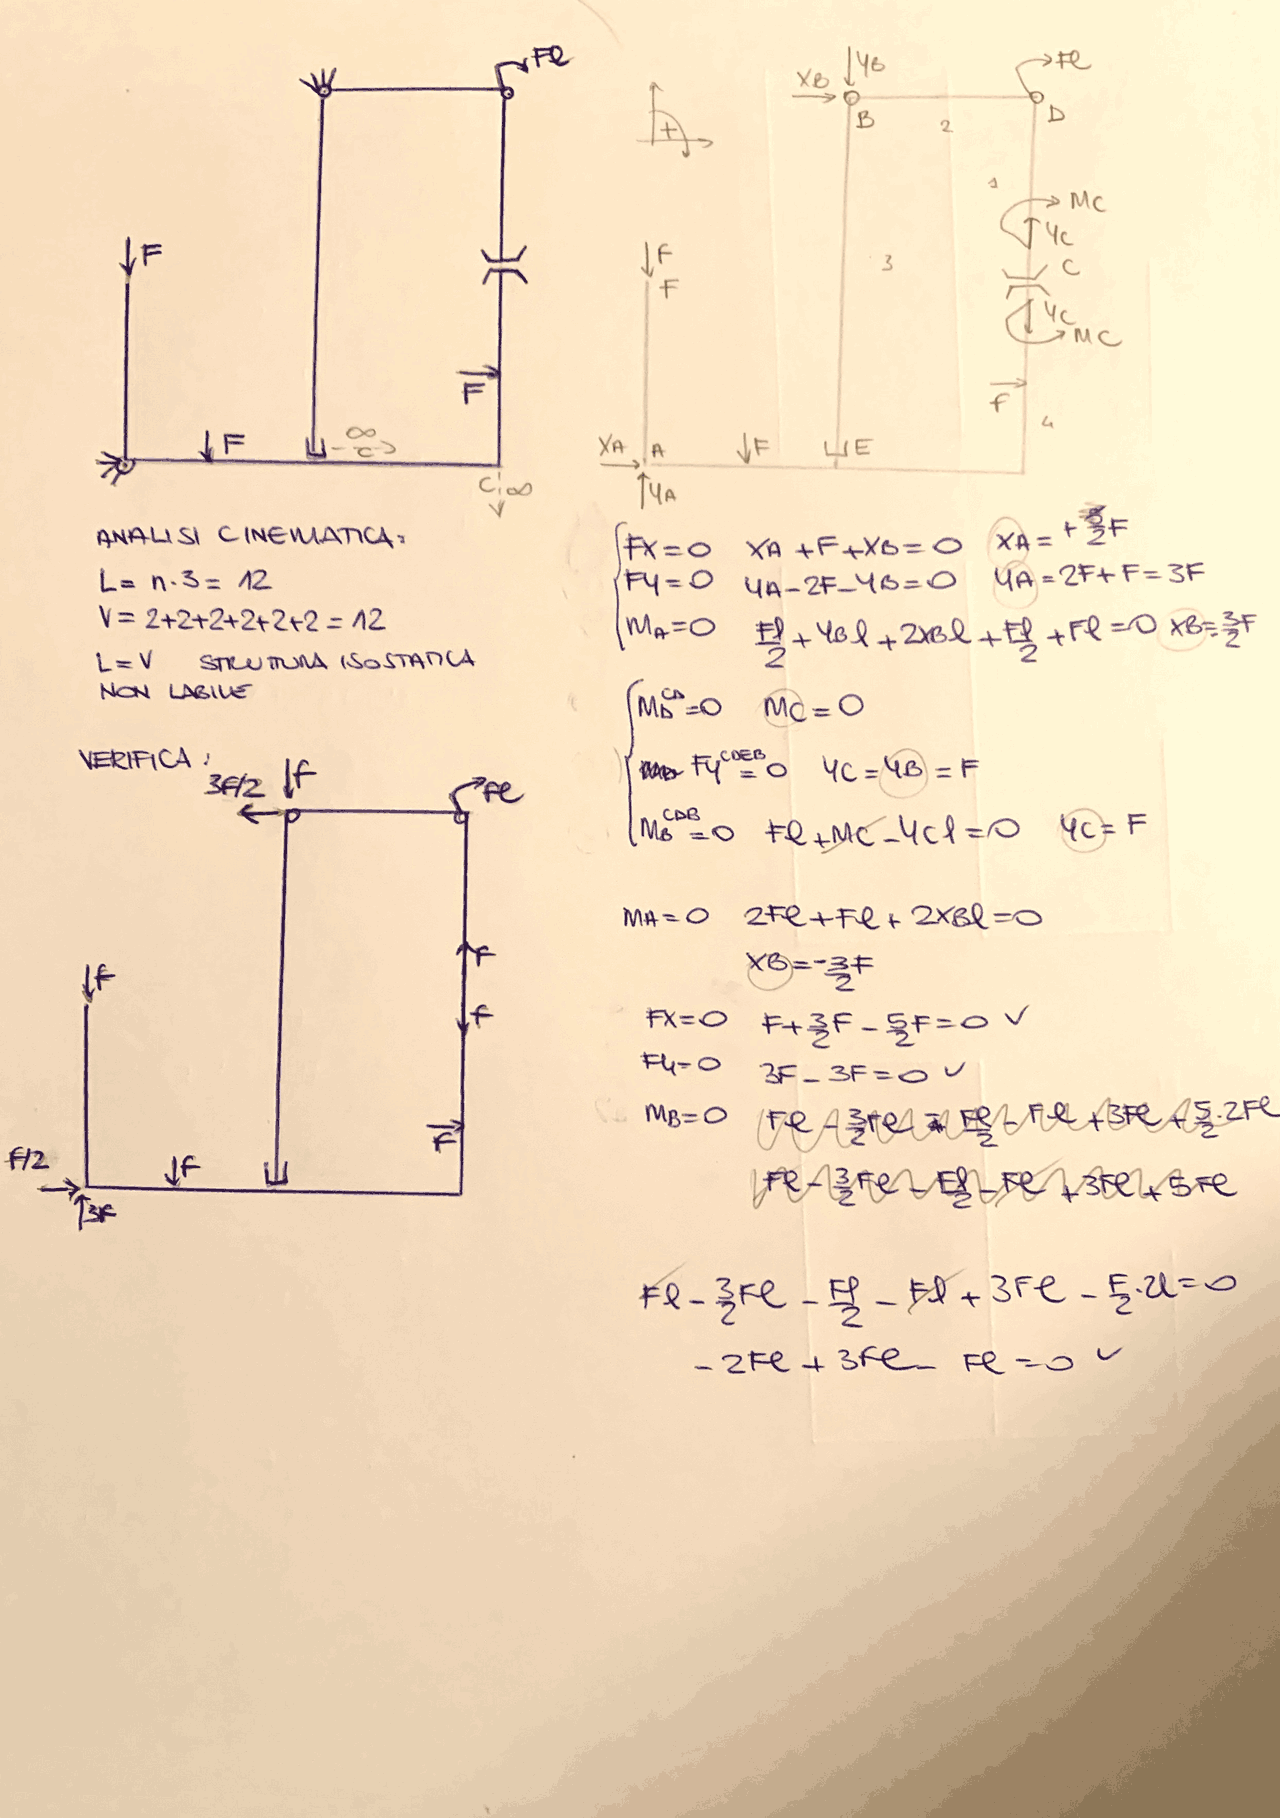 Fl
F
F
F
∞
C
C ∞
XB
YB
Fl
B
2
D
+
1
MC
YC
C
YC
MC
3
F
F
F
4
XA
A
F
E
YA
ANALISI CINEMATICA:
L = n·3 = 12
V = 2+2+2+2+2+2 = 12
L = V STRUTTURA ISOSTATICA
NON LABILE
FX=0 XA + F + XB = 0 XA =
FY=0 YA - 2F - YB = 0 YA = 2F + F = 3F
MA=0 Fl/2 + YBl + 2XBl + Fl/2 + Fl = 0 XB = 3/2F
MD^CD=0 MC = 0
FY^CDEB=0 YC = YB = F
MB^CDB=0 Fl + MC - YCl = 0 YC = F
MA=0 2Fl + Fl + 2XBl = 0
XB = -3/2F
FX=0 F + 3/2F - 5/2F = 0 ✓
FY=0 3F - 3F = 0 ✓
MB=0 Fl - 3/2Fl - Fl/2 - Fl + 3Fl + 5/2·2Fl
Fl - 3/2Fl - Fl/2 - Fl + 3Fl + 5Fl
Fl - 3/2Fl - Fl/2 - Fl + 3Fl - F/2·2l = 0
- 2Fl + 3Fl - Fl = 0 ✓
VERIFICA:
3F/2
F
Fl
F
F
F
F
F/2
3F
F